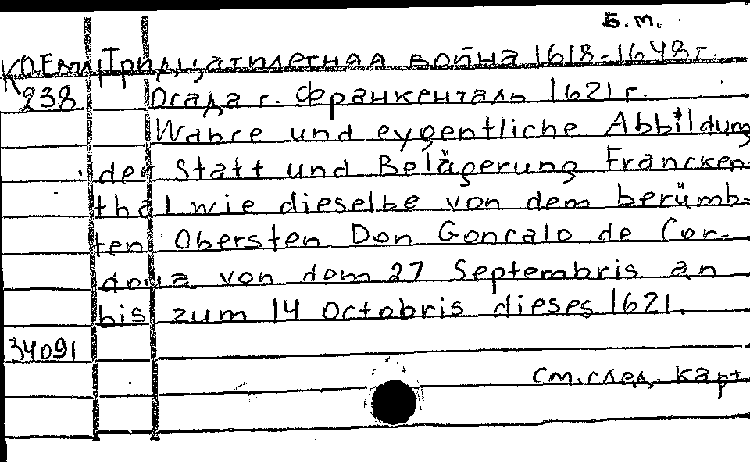 Б.м.
КОЕМц Тридцатилетняя война 1618-1648 г.
238 Осада г. Франкенталь 1621 г.
Wahre und eygentliche Abbildung
der Statt und Belägerung Francken
thal wie dieselbe von dem berümb-
ten Obersten Don Goncalo de Cor-
doua von dom 27 Septembris an
bis zum 14 Octobris dieses 1621.
34091
см. след. карт